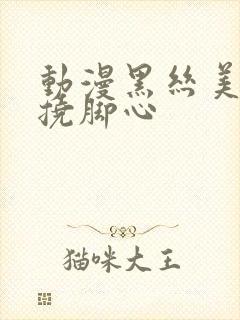 動漫黑絲美
撓脚心
猫咪大王